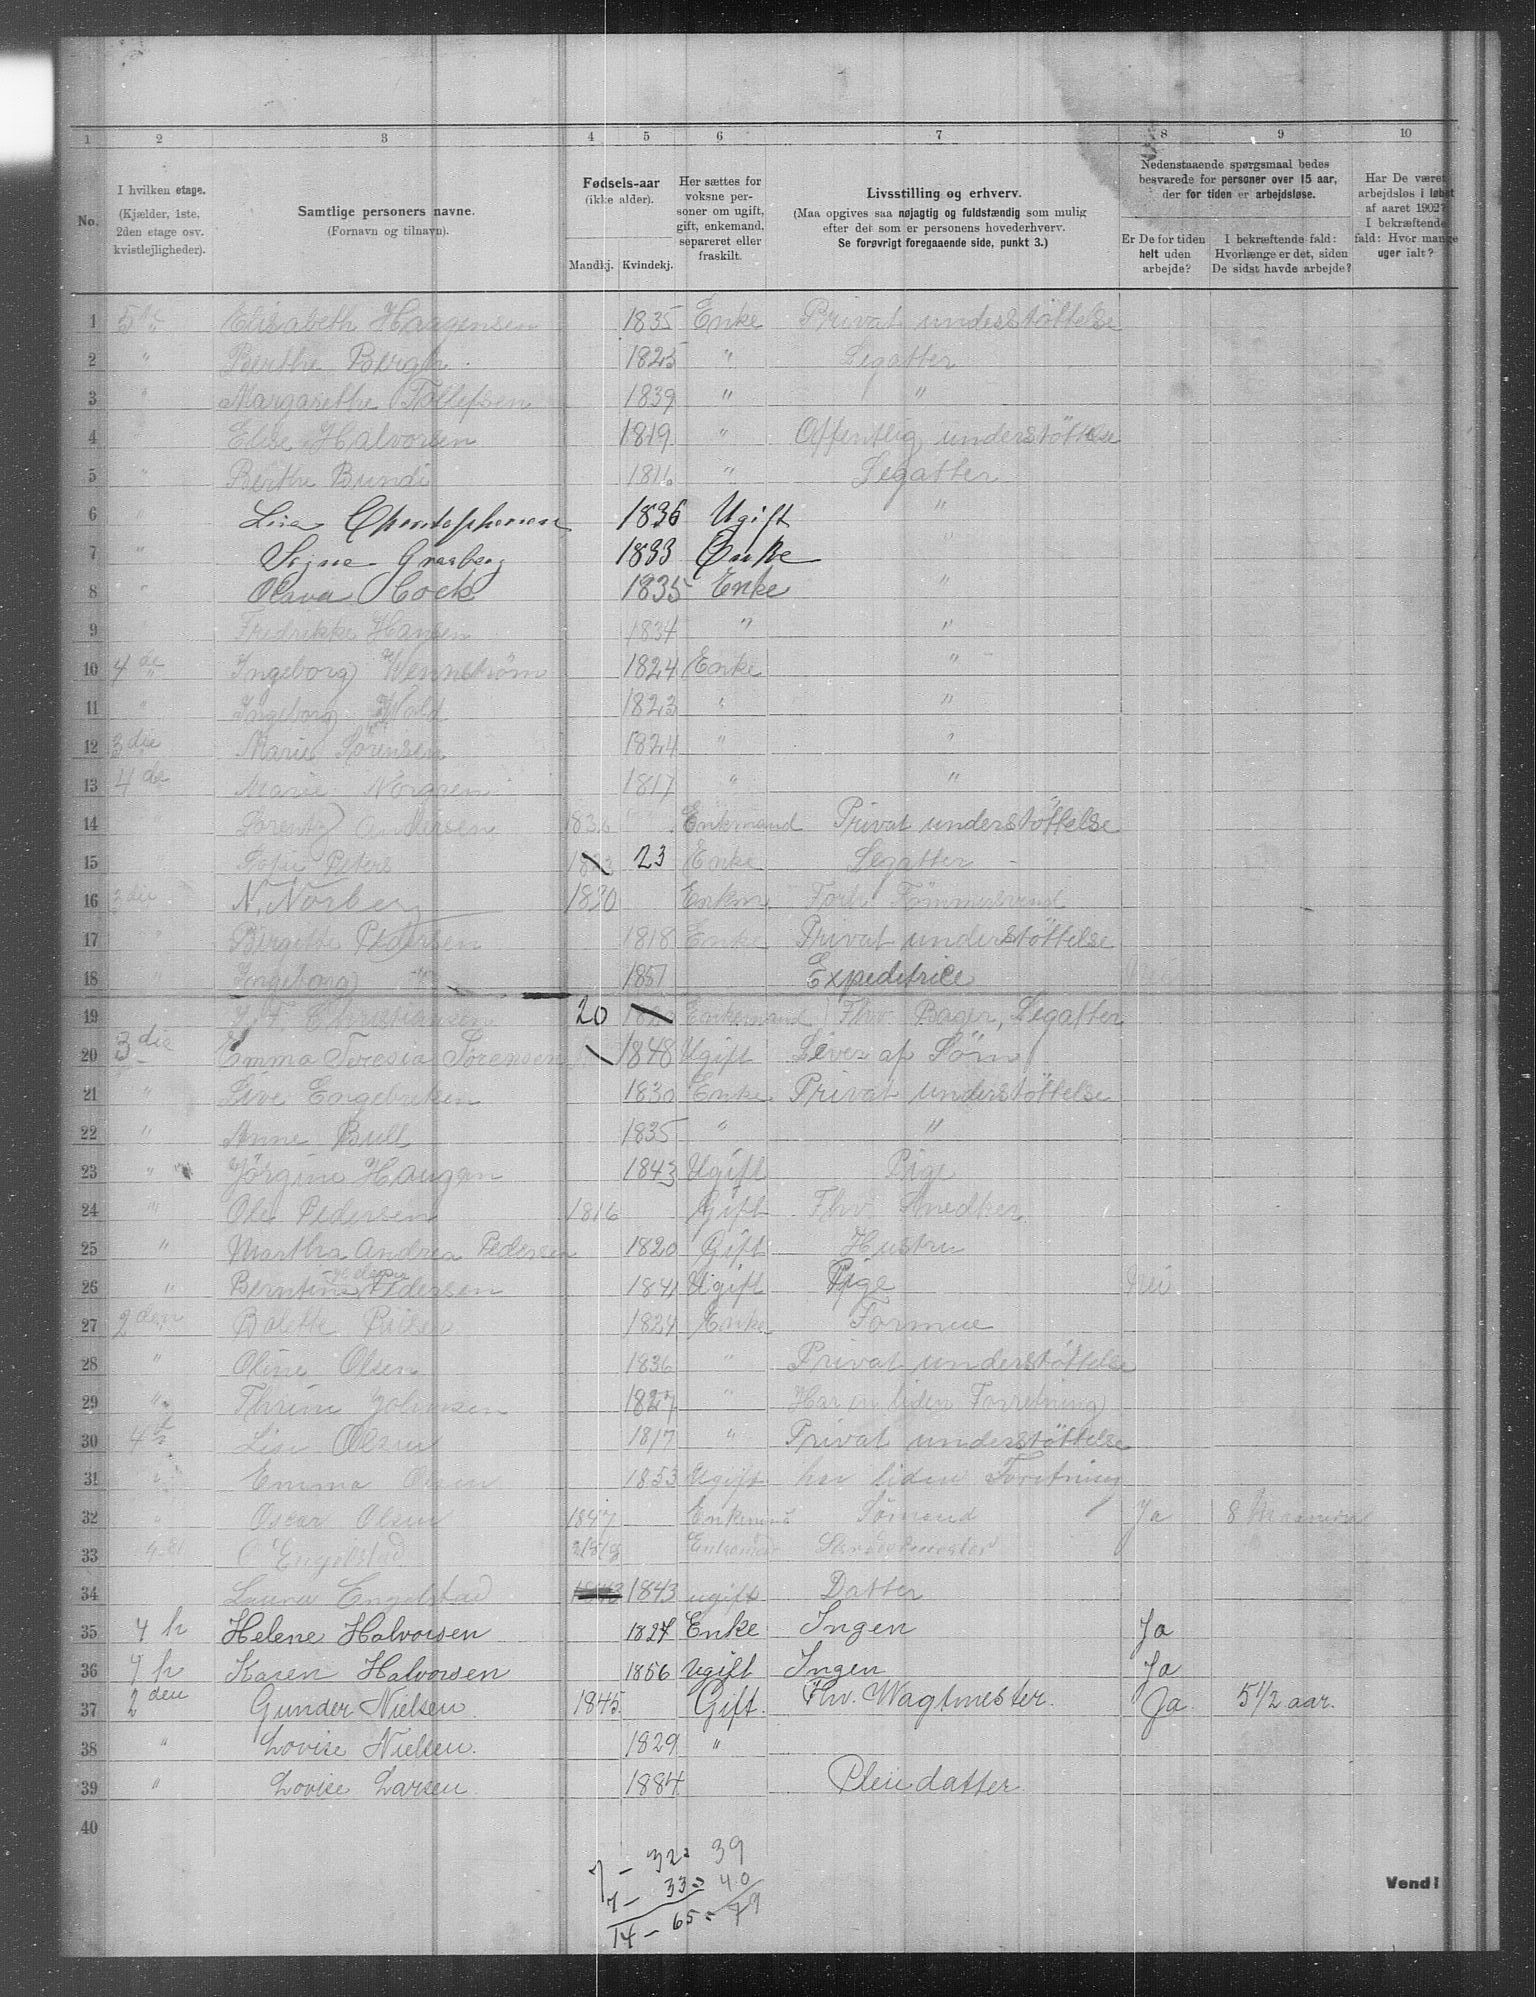 1 2 3 4 5 6 7 8 9 10
No.
I hvilken etage.
(Kjælder, 1ste,
2den etage osv.
kvistleiligheder).
Samtlige personers navne.
(Fornavn og tilnavn).
Fødsels-aar
(ikke alder).
Mandkj. Kvindekj.
Her sættes for
voksne per-
soner om ugift,
gift, enkemand,
separeret eller
fraskilt.
Livsstilling og erhverv.
(Maa opgives saa nøjagtig og fuldstændig som mulig
efter det som er personens hovederhverv.
Se forøvrigt foregaaende side, punkt 3.)
Nedenstaaende spørgsmaal bedes
besvarede for personer over 15 aar,
der for tiden er arbejdsløse.
Er De for tiden
helt uden
arbejde?
I bekræftende fald:
Hvorlænge er det, siden
De sidst havde arbejde?
Har De været
arbejdsløs i løbet
af aaret 1902?
I bekræftende
fald: Hvor mange
uger ialt?
1 5te Elisabeth Haagensen 1835 Enke Privat understöttelse
2 " Berthe Bergh 1825 " Legatter
3 " Margarethe Tollefsen 1839 " "
4 " Elise Halvorsen 1819 " Offentlig understöttelse
5 " Berthe Bundi 1816 " Legatter
6 " Lisa Christophersen 1836 Ugift "
7 " Signe Grasberg 1833 Enke "
8 " Olava Cock 1835 Enke "
9 " Fredrikke Hansen 1834 " "
10 4de Ingeborg Wennström 1824 Enke "
11 " Ingeborg Wold 1823 " "
12 3die Marie Sörensen 1824 " "
13 4de Marie Norgren 1817 " "
14 Lorentz Andersen 1836 Enkemand Privat understöttelse
15 " Peters 23 Enke Legatter
16 3die N. Norberg 1820 Enkm. Forh. Tömmermand
17 " Birgitte Pedersen 1818 Enke Privat understöttelse
18 " Ingeborg 1851 Expeditrice
19 Christiansen 20 Enkemand Fhv. Bager, Legatter
20 3die Emma Teresia Sörensen 1848 Ugift Lever af Söm
21 " Live Engebretsen 1830 Enke Privat understöttelse
22 " Anne Bull 1835 " "
23 " Jörgine Haugan 1843 Ugift Pige
24 " Ole Pedersen 1816 Gift Fhv. Snedker
25 " Martha Andrea Pedersen 1820 Gift Hustru
26 " Berntine Pedersen 1841 Ugift Pige Nei
27 2den Bolette 1824 Enke Formue
28 " Oline Olsen 1836 " Privat understöttelse
29 " Thrine Johnsen 1827 " Har en liden Forretning
30 4de Lise Olsen 1817 " Privat understöttelse
31 " Emma Olsen 1853 Ugift har liden Forretning
32 " Oscar Olsen 1847 Enkemand Sömand Ja 8 Maaneder
33 Engelstad
34 Laura Engelstad 1843 ugift Datter
35 4 Helene Halvorsen 1827 Enke Ingen Ja
36 4 Karen Halvorsen 1856 Ugift Ingen Ja
37 2den Gunder Nielsen 1845. Gift. Fhv. Wagtmester. Ja. 5 1/2 aar.
38 " Lovise Nielsen. 1829 "
39 " Lovise Larsen. 1884 Pleiedatter
40
7 – 32 = 39
7 – 33 = 40
14 – 65 = 79
Vend!